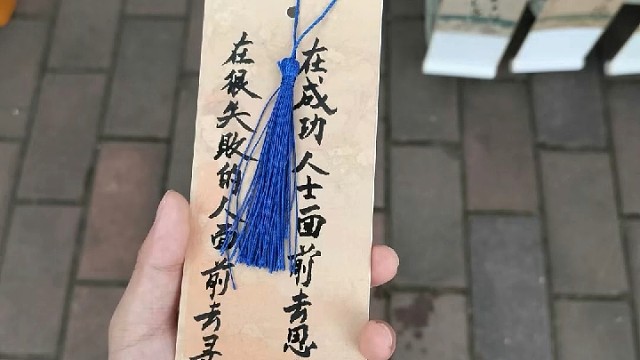 在成功人士面前去思
在很失败的人面前去寻